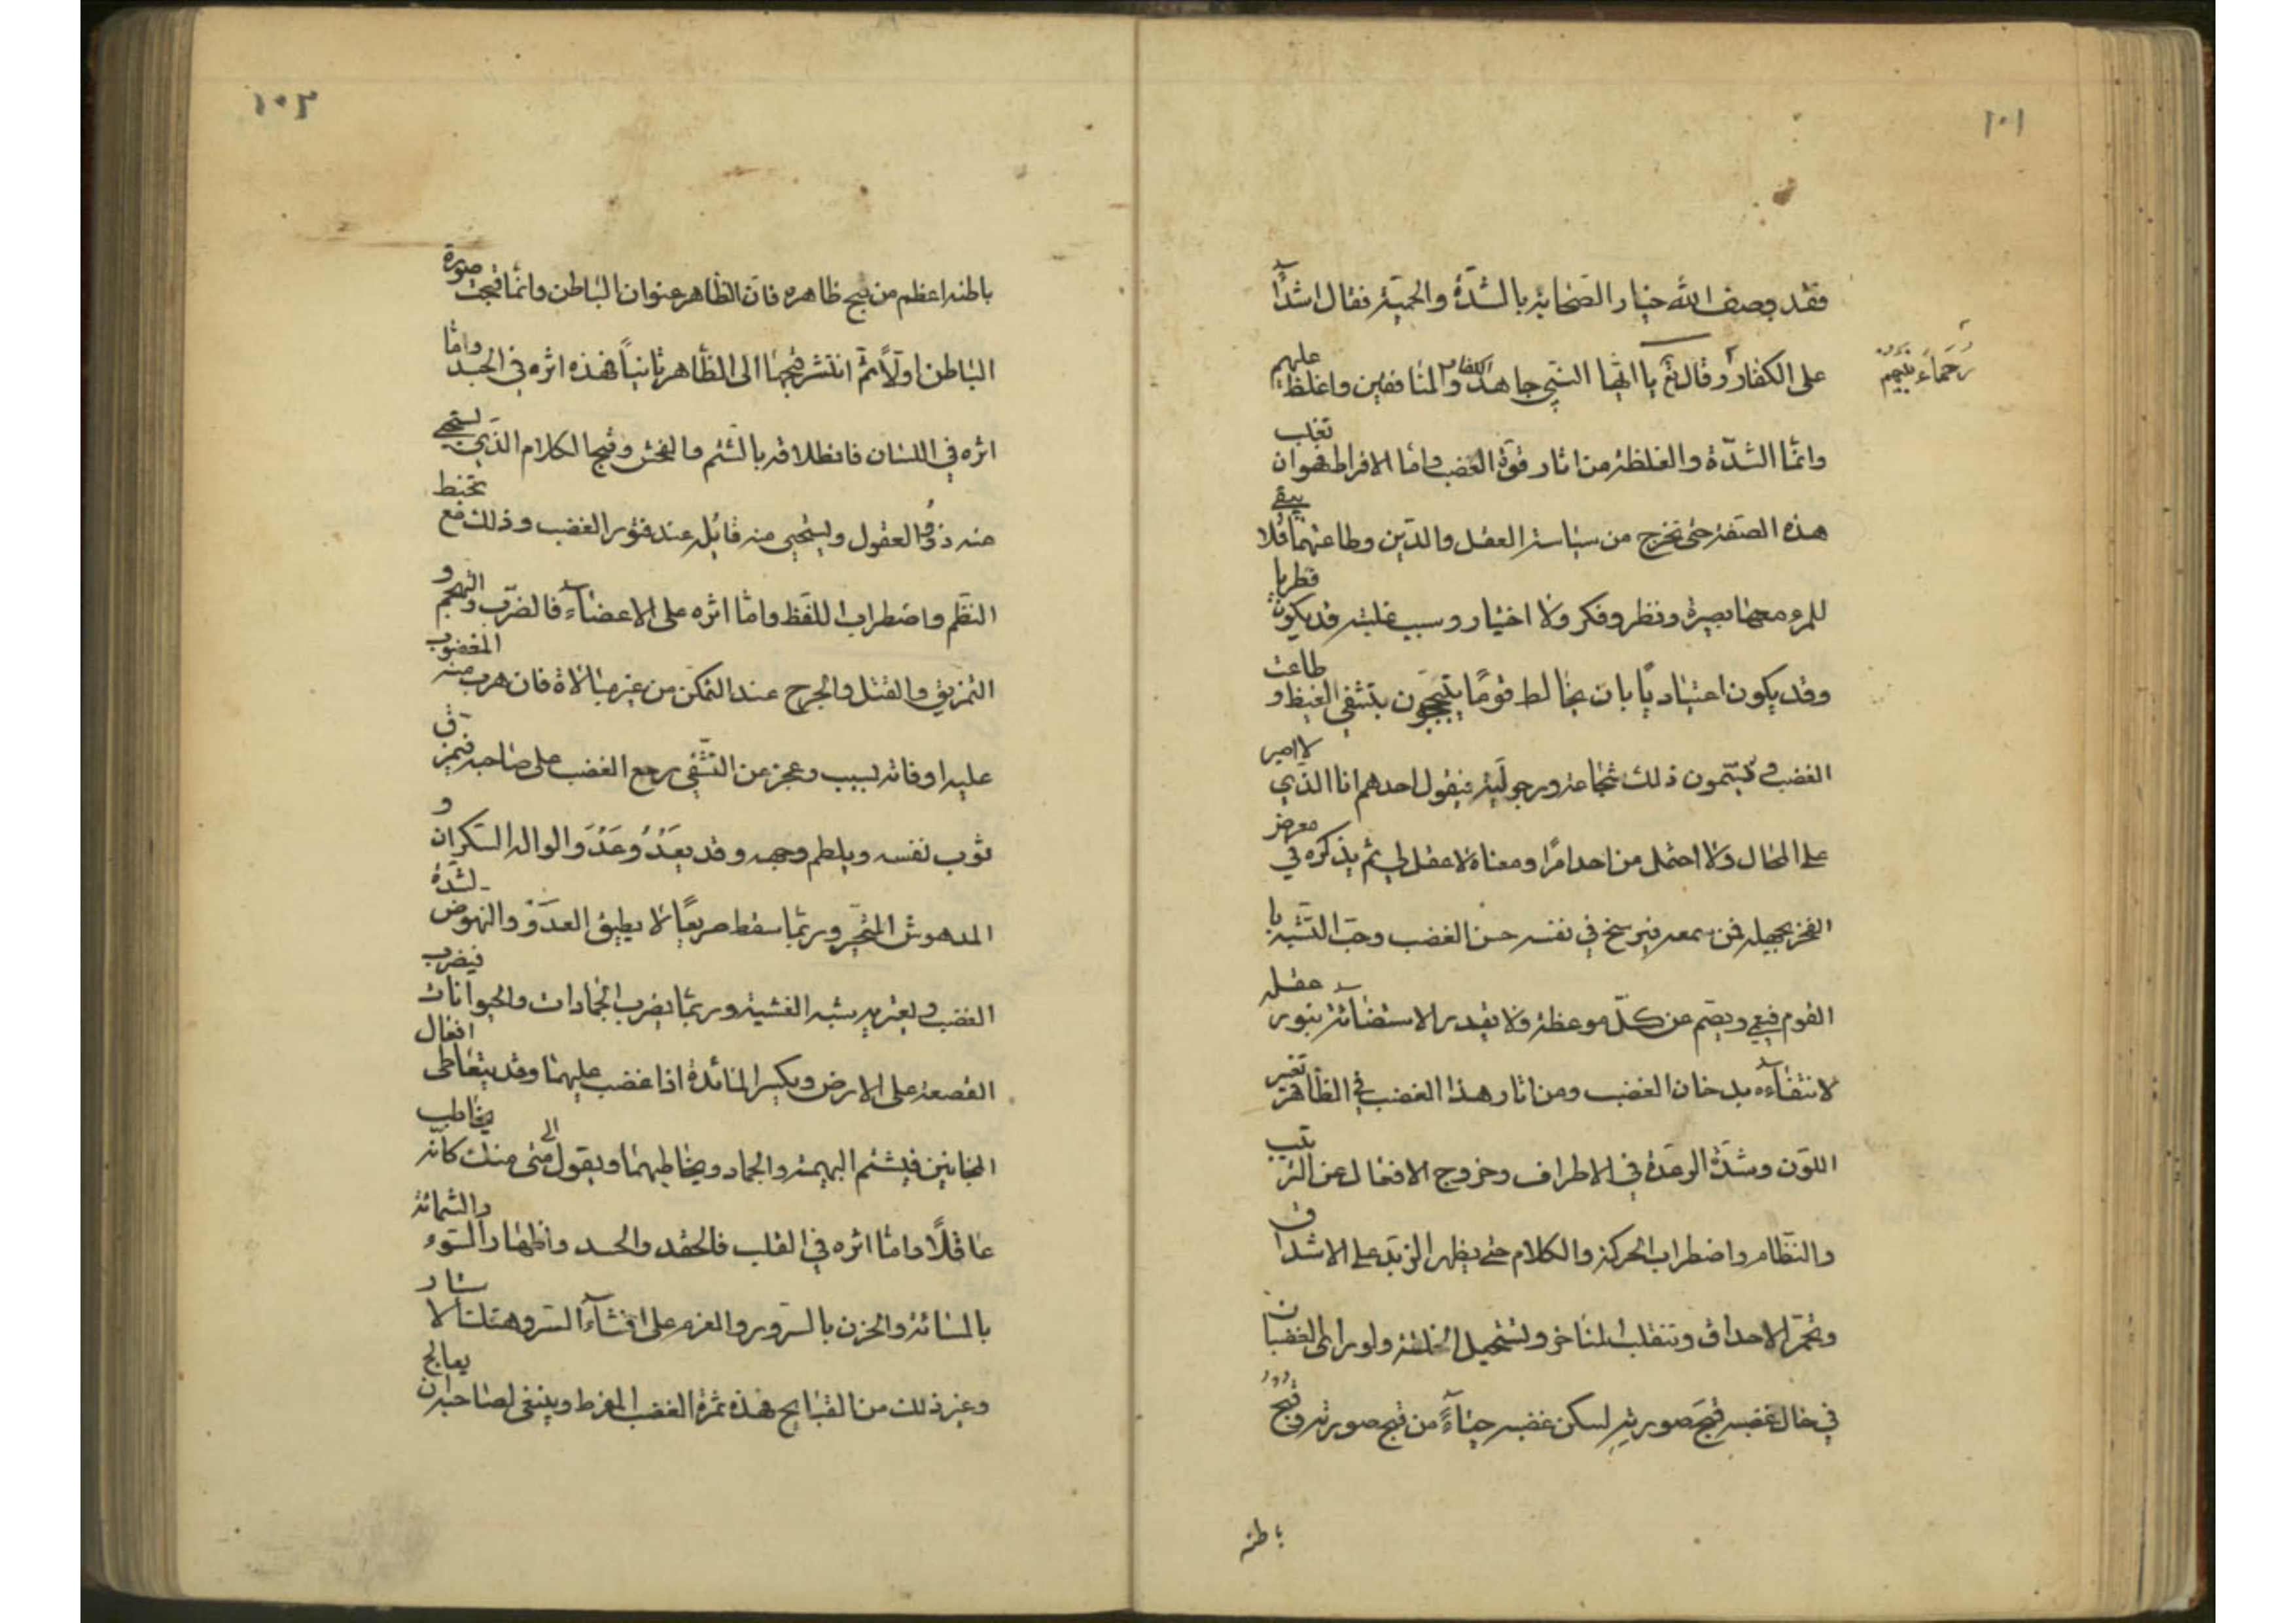 ١٠١
فقد وصف الله خيار الصحابة بالشدّة والحميّة فقال اشدّآء
على الكفار وقال تع يا ايّها النّبي جاهد الكفار والمنافقين واغلظ عليهم
رُحَمَاءُ بَينهم
وانّما الشدّة والغلظة من اثار قوّة الغضب واما الافراط فهو ان تغلب
هذه الصّفة حتى تخرج من سياسة العقل والدّين وطاعتهما فلا يبقى
للمرء معها بصيرة ونظر وفكر ولا اختيار وسبب غلبته قد يكون فطريا
وقد يكون اعتياديّا بان يخالط قومًا يتبجّحون بتشفى الغيظ و طاعت
الغضب ويسمّون ذلك شجاعة ورجوليّة فيقول احدهم انا الذّي لا اصبر
على المحال ولا احتمل من احد امرًا ومعناه لا عقل لي ثم يذكره في معرض
الفخر بجهله فمن سمعه فيرسخ في نفسه حسن الغضب وحبّ التشبّه با
القوم فيعمي ويصّم عن كلّ موعظة ولا يقدر الاستضآئة بنور عقله
لانتفآءه بدخان الغضب ومن اثار هذا الغضب في الظّاهر تغيّر
اللّون وشدّة الرعدة في الاطراف وخروج الافعال عن التر تيب
والنّظام واضطراب الحركة والكلام حتى يظهر الزّبد على الاشدا ق
وتحمّر الاحداق وتنقلب المناخر وتستحيل الخلقة ولو راى الغضبا ن
في حال غضبه قُبحَ صورتهِ لسكن غضبه حيآءً من قبح صورته وقُبْحُ
باطنه
١٠٢
باطنه اعظم من قبح ظاهره فانّ الظّاهر عنوان الباطن وانّما قبحت صورة
الباطن اولاً ثمّ انتشر قبحها الى الظّاهر ثانياً فهذه اثره في الجسد وامّا
اثره في اللسان فانطلاقه بالشّتم والفحش وقبح الكلام الذّي يستحيى
منه ذوُو العقول ويستحيى منه قائله عند فتور الغضب وذلك مع تخبط
النّظم واضطراب اللّفظ وامّا اثره على الاعضآء فالضّرب والتهجم و
التمزيق والقتل والجرح عند التمكن من غير مبالاة فان هرب منه المغضوب
عليه او فاته بسبب وعجز عن التّشّفى رجع الغضب على صاحبه فيمز ق
ثوب نفسه ويلطم وجهه وقد يعَدُو عَدْوَ الواله السّكران و
المدهوش المتحيّر وربّما سقط صريعًا لا يطيق العدوّ والنهوض لشدّة
الغضب ويعتريه شبه الغشية وربّما يضرب الجمادات والحيوانات فيضرب
القصعة على الارض ويكسر المائدة اذا غضب عليهما وقد يتعاطى افعال
المجانين فيشتم البهيمة والجماد ويخاطبهما ويقول الى متى منك كانّه يخاطب
عاقلاً وامّا اثره في القلب فالحقد والحسد واظهار السّوء والشّماتة
بالمسائة والحزن بالسّرور والعزم على افشآء السّر وهتك الا ستار
وغير ذلك من القبايح فهذه ثمرة الغضب المفرط وينبغى لصاحبه ان يعالج